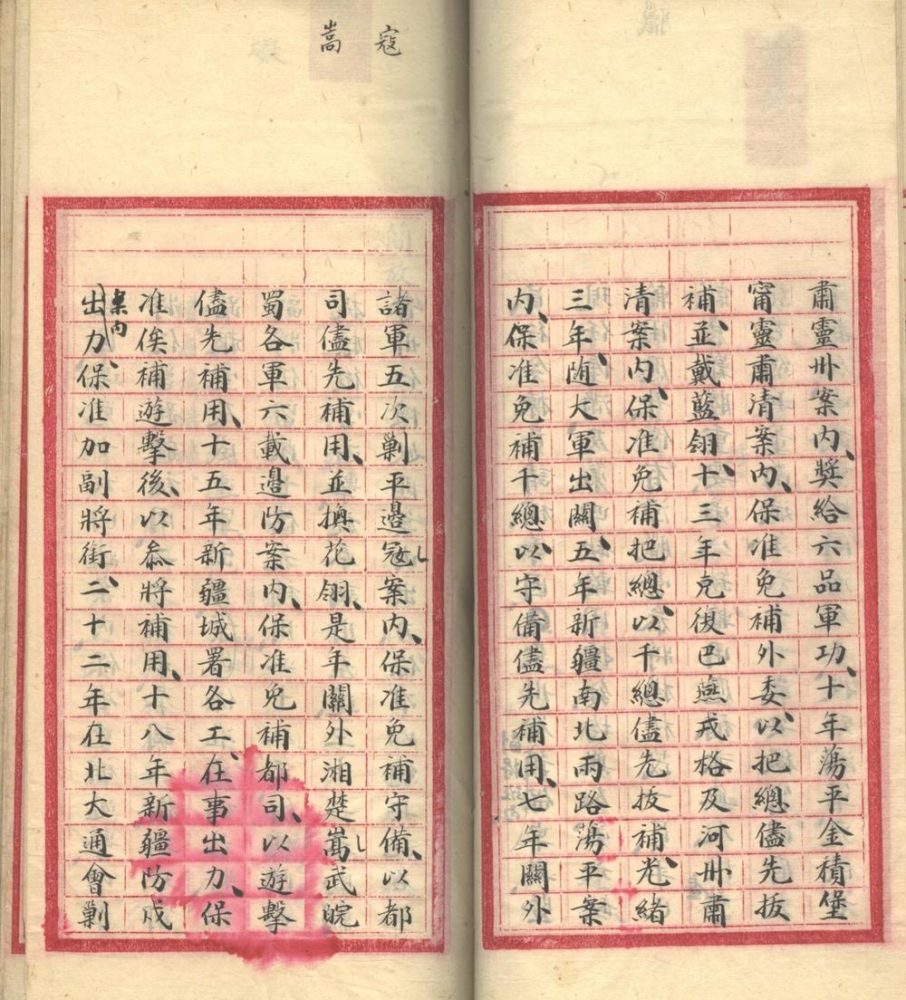 肅靈州案內、奬給六品軍功、十年蕩平金積堡
甯靈肅清案內、保准免補外委、以把總儘先拔
補、並戴藍翎、十三年克復巴燕戎格及河州肅
清案內、保准免補把總、以千總儘先拔補、光緒
三年、随大軍出關、五年新疆南北兩路蕩平案
內、保准免補千總、以守備儘先補用、七年關外
寇
嵩
諸軍五次剿平邊寇案內、保准免補守備、以都
司儘先補用、並換花翎、是年關外湘楚嵩武皖
蜀各軍六載邊防案內、保准免補都司、以遊擊
儘先補用、十五年新疆城署各工、在事出力、保
准俟補遊擊後、以叅將補用、十八年新疆防戍
出力案內、保准加副將銜、二十二年在北大通會剿